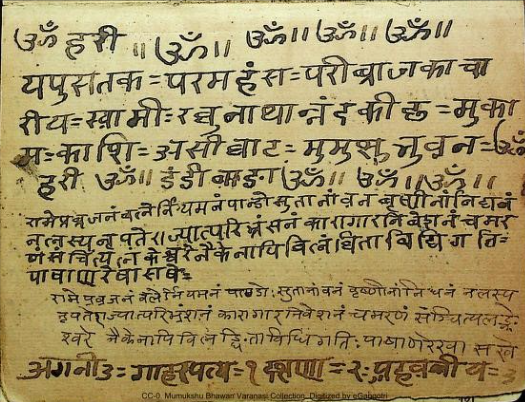 ॐ हरी ॥ ॐ॥ ॐ॥ ॐ॥ ॐ॥
यपुसतक = परमहंस = परीब्राजकाचा
रीय = स्वामीः रघुनाथान्नंदकी हु = मुका
म = काशि = असीघाट = मुमुक्षु भुवन = ॐ
हरी ॐ॥ डंडीबाडा ॐ॥ ॐ॥ ॐ॥
रामे प्रब्रजनं बलेर्नियमनं पान्डो सुतानां वनं बृष्णीनां निधनं
नलस्य नृपते राज्यात्परिभ्रंसनं कारागारनिवेशनं चमर
णंसंचिंत्य लंकेश्वरे नैकेनापि विलंघिता विधिगति
पाषाणरेषासषे
रामे प्रब्रजनं बलेर्नियमनं पाण्डोः सुतानां वनं वृष्णीनां निधनं नलस्य
नृपते राज्यात्परिभ्रशनं कारागारनिवेशनं च मरणं संञ्चित्य लङ्के
श्वरे नैकेनापि विलङ्घिता विधिगतिः पाषाणरेरवा सखे
अगनी३ = गाहसपत्य = १ दक्षणा = २
CC-0. Mumukshu Bhawan Varanasi Collection. Digitized by eGangotri